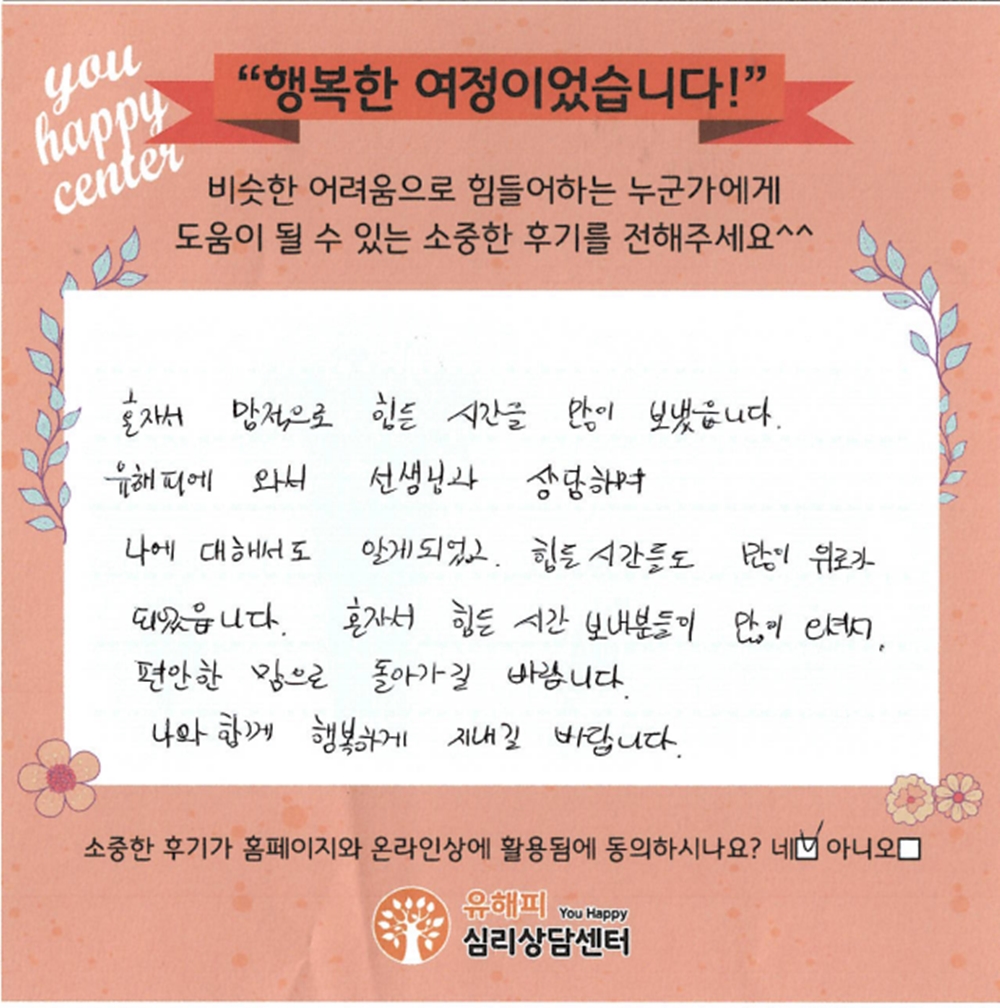 you
happy
center
“행복한 여정이었습니다!”
비슷한 어려움으로 힘들어하는 누군가에게
도움이 될 수 있는 소중한 후기를 전해주세요^^
혼자서 맘적으로 힘든 시간을 많이 보냈읍니다.
유해피에 와서 선생님과 상담하며
나에 대해서도 알게되었고. 힘든 시간들도 많이 위로가
되었읍니다. 혼자서 힘든 시간 보내분들이 많이 오셔서,
편안한 맘으로 돌아가길 바랍니다.
나와 함께 행복하게 지내길 바랍니다.
소중한 후기가 홈페이지와 온라인상에 활용됨에 동의하시나요? 네 아니오
유해피 You Happy
심리상담센터